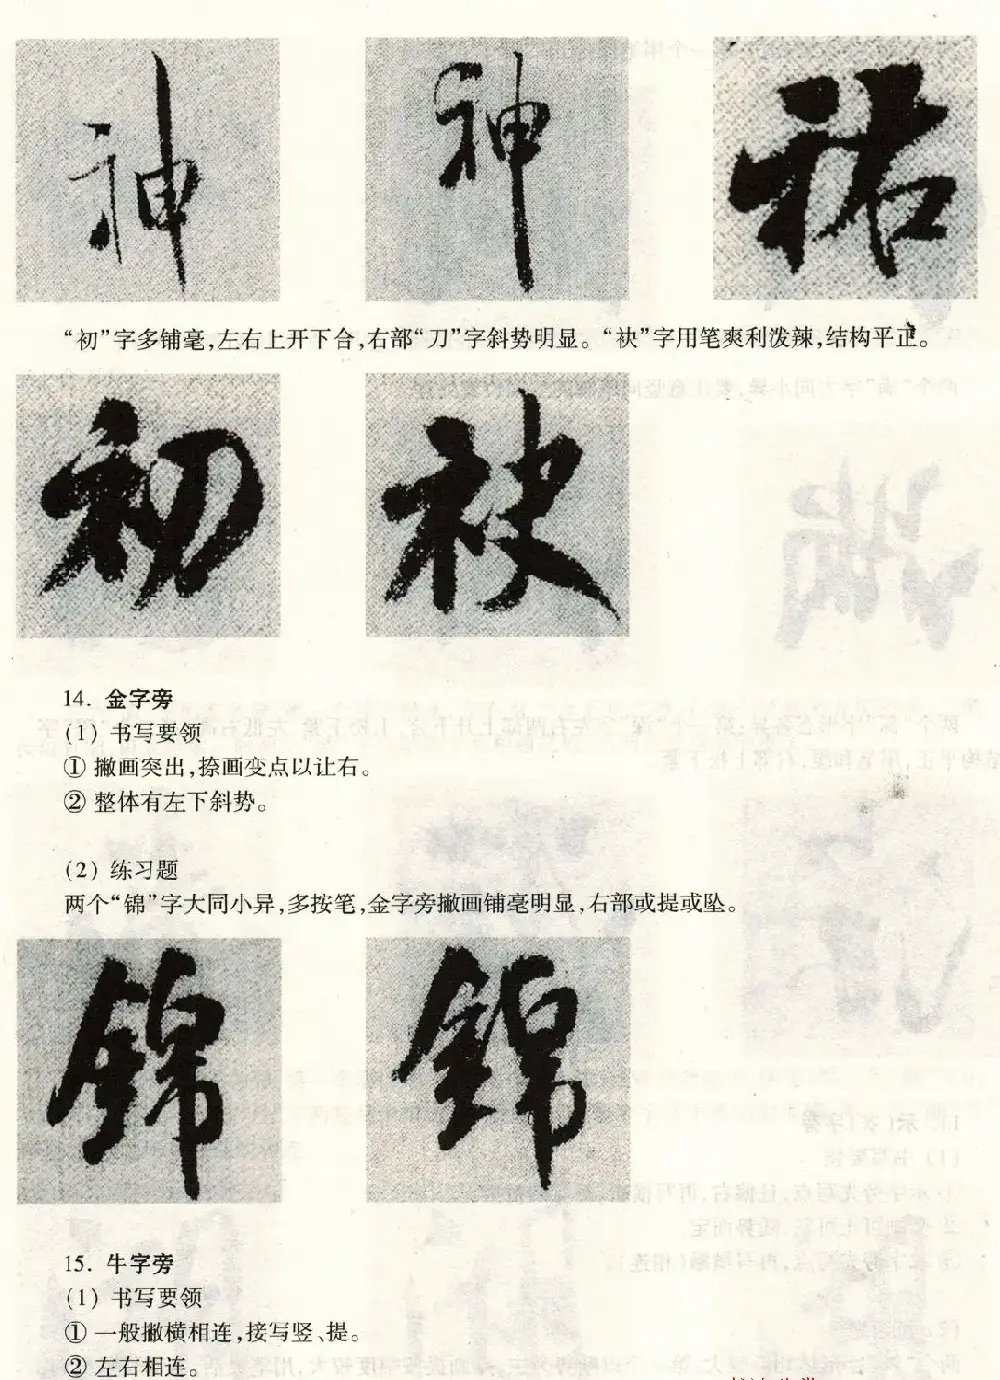 神 神 祐
“初”字多铺毫,左右上开下合,右部“刀”字斜势明显。 “袂”字用笔爽利泼辣,结构平正。
初 袂
14. 金字旁
(1) 书写要领
① 撇画突出,捺画变点以让右。
② 整体有左下斜势。
(2) 练习题
两个“锦”字大同小异,多按笔,金字旁撇画铺毫明显,右部或提或坠。
錦 錦
15. 牛字旁
(1) 书写要领
① 一般撇横相连,接写竖、提。
② 左右相连。